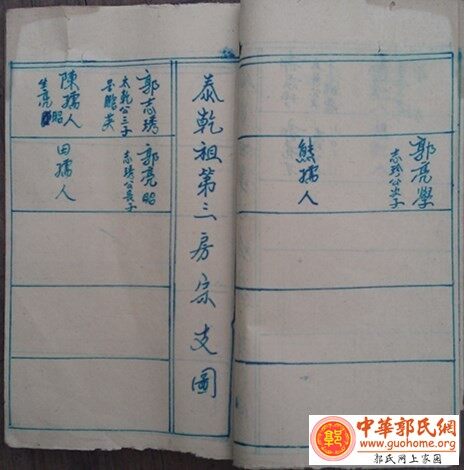 郭亮學
志珍公次子
熊孺人
泰乾祖第三房宗支圖
郭志琇
太乾公三子
英
陳孺人
生亮昭
郭亮昭
志琇公長子
田孺人
郭
中華郭氏網
www.guohome.org
郭氏网上家园